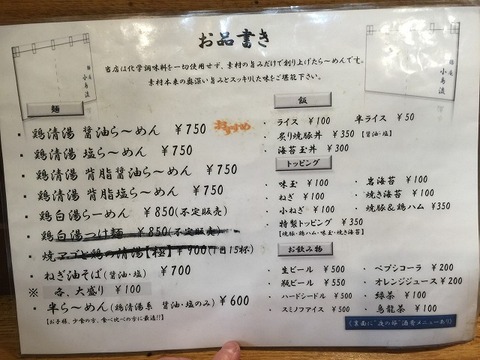 お品書き
当店は化学調味料を一切使用せず、素材の旨みだけで創り上げたら〜めんです。
素材本来の奥深い旨みとスッキリした味をご堪能下さい。
麺
・鶏清湯 醤油ら〜めん ￥750 おすすめ
・鶏清湯 塩ら〜めん ￥750
・鶏清湯 背脂醤油ら〜めん ￥750
・鶏清湯 背脂塩ら〜めん ￥750
・鶏白湯ら〜めん ￥850(不定販売)
・鶏白湯つけ麺 ￥850(不定販売)
・焼アゴと鶏の清湯【極】 ￥900(1日15杯)
・ねぎ油そば(醤油・塩) ￥700
※ 各、大盛り ￥100
・半ら〜めん(鶏清湯系 醤油・塩のみ) ￥600
【お子様、少食の方、食べ比べの方に最適!!】
飯
・ライス ￥100
・半ライス ￥50
・炙り焼豚丼 ￥350 【醤油・塩】
・海苔玉丼 ￥300
トッピング
・味玉 ￥100
・岩海苔 ￥100
・ねぎ ￥100
・焼き海苔 ￥100
・小ねぎ ￥100
・焼豚&鶏ハム ￥350
・特製トッピング ￥350
【焼豚・鶏ハム・味玉・焼き海苔】
お飲み物
・生ビール ￥500
・ペプシコーラ ￥200
・瓶ビール ￥550
・オレンジジュース ￥200
・ハードシードル ￥500
・緑茶 ￥100
・スミノフアイス ￥500
・烏龍茶 ￥100
《裏面に"夜の部"酒肴メニューあり》